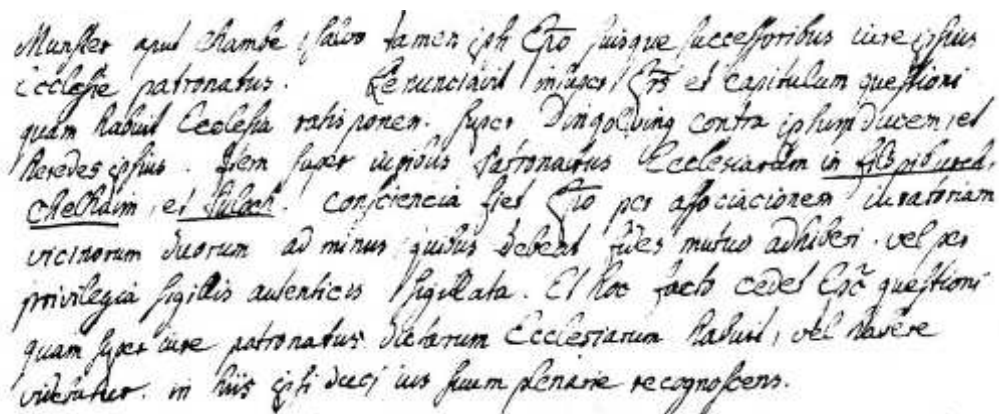 Munster aput Chambe, salvo tamen ipsi Epo suisque successoribus iure ipsius
Ecclesie patronatus. Renunciavit insuper Eps et capitulum questioni
quam habuit Ecclesia ratisponen. super Dingolving contra ipsum ducem, et
heredes ipsius. Item super iuribus Patronatus Ecclesiarum in
chelhaim, et conscienciam fiet Epo per associacionem iuratoriam
vicinorum duorum ad minus, quibus debent fides mutuo adhiberi. vel per
privilegia sigillis autenticis sigillata. Et hoc facto cedet Epc questioni
quam super iure patronatus dictarum Ecclesiarum habuit, vel habere
videbatur. in hiis ipsi duci ius suum plenarie recognoscens.